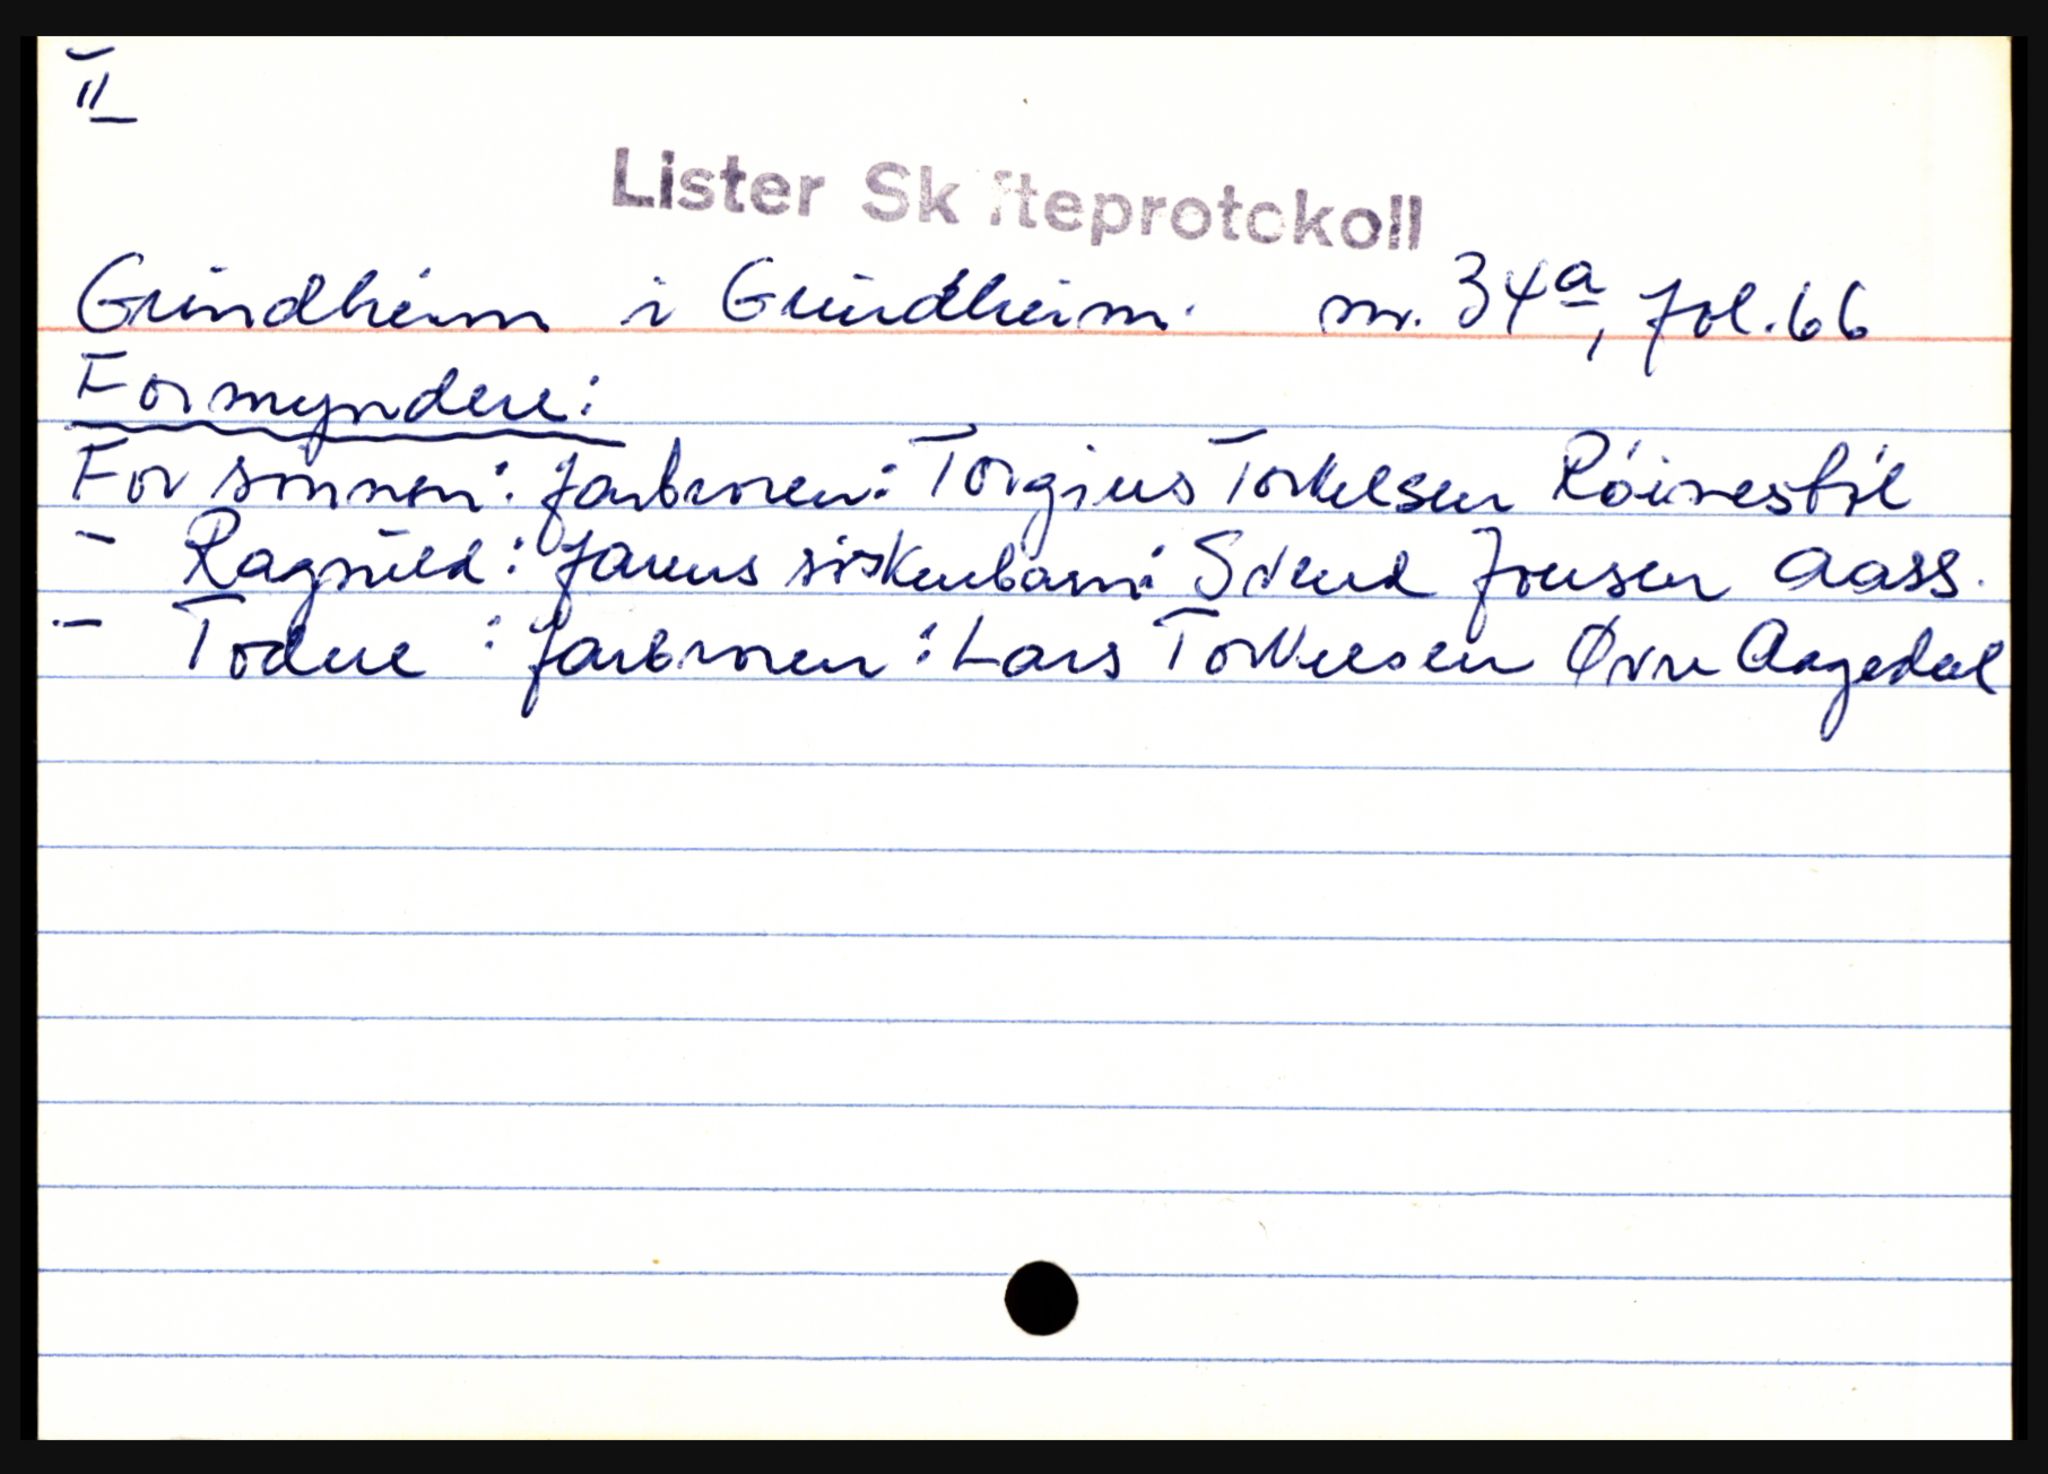 II
Lister Skifteprotokoll
Grindheim i Grindheim. nr. 34a, fol. 66
Formyndere:
For sønnen: farbroren: Torgius Torkelsen Røinestøl
- Ragnild: farens søskenbarn: Svend Jonsen Aass.
- Todne : farbroren: Lars Torkelsen Øvre Aagedal